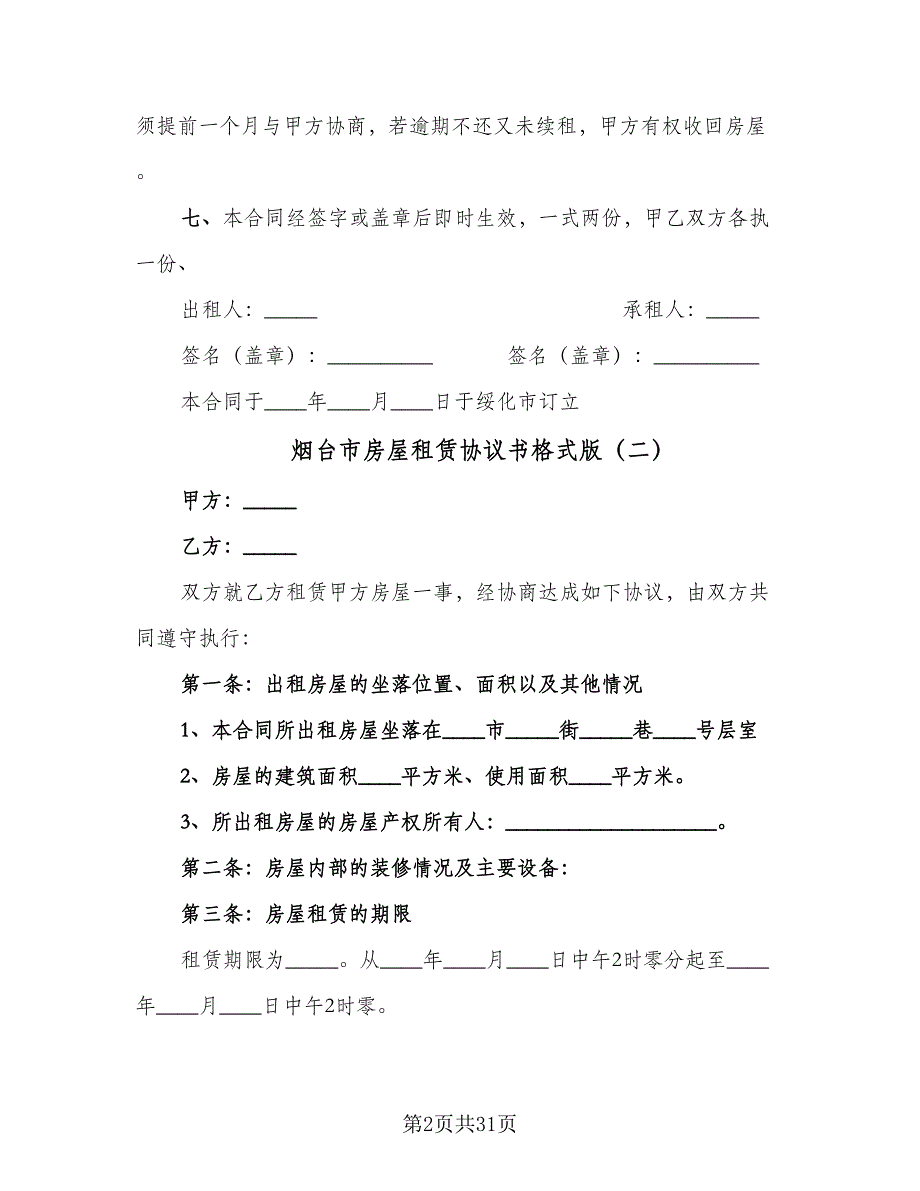 须提前一个月与甲方协商，若逾期不还又未续租，甲方有权收回房屋
。
七、本合同经签字或盖章后即时生效，一式两份，甲乙双方各执
一份、
出租人：_____ 承租人：_____
签名（盖章）：__________ 签名（盖章）：__________
本合同于____年____月____日于绥化市订立
烟台市房屋租赁协议书格式版（二）
甲方：_____
乙方：_____
双方就乙方租赁甲方房屋一事，经协商达成如下协议，由双方共
同遵守执行：
第一条：出租房屋的坐落位置、面积以及其他情况
1、本合同所出租房屋坐落在____市_____街_____巷____号层室
2、房屋的建筑面积____平方米、使用面积____平方米。
3、所出租房屋的房屋产权所有人：____________________。
第二条：房屋内部的装修情况及主要设备：
第三条：房屋租赁的期限
租赁期限为_____。从____年____月____日中午2时零分起至____
年____月____日中午2时零。
第2页共31页